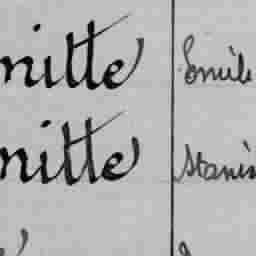 nitte Emile
nitte Stanis